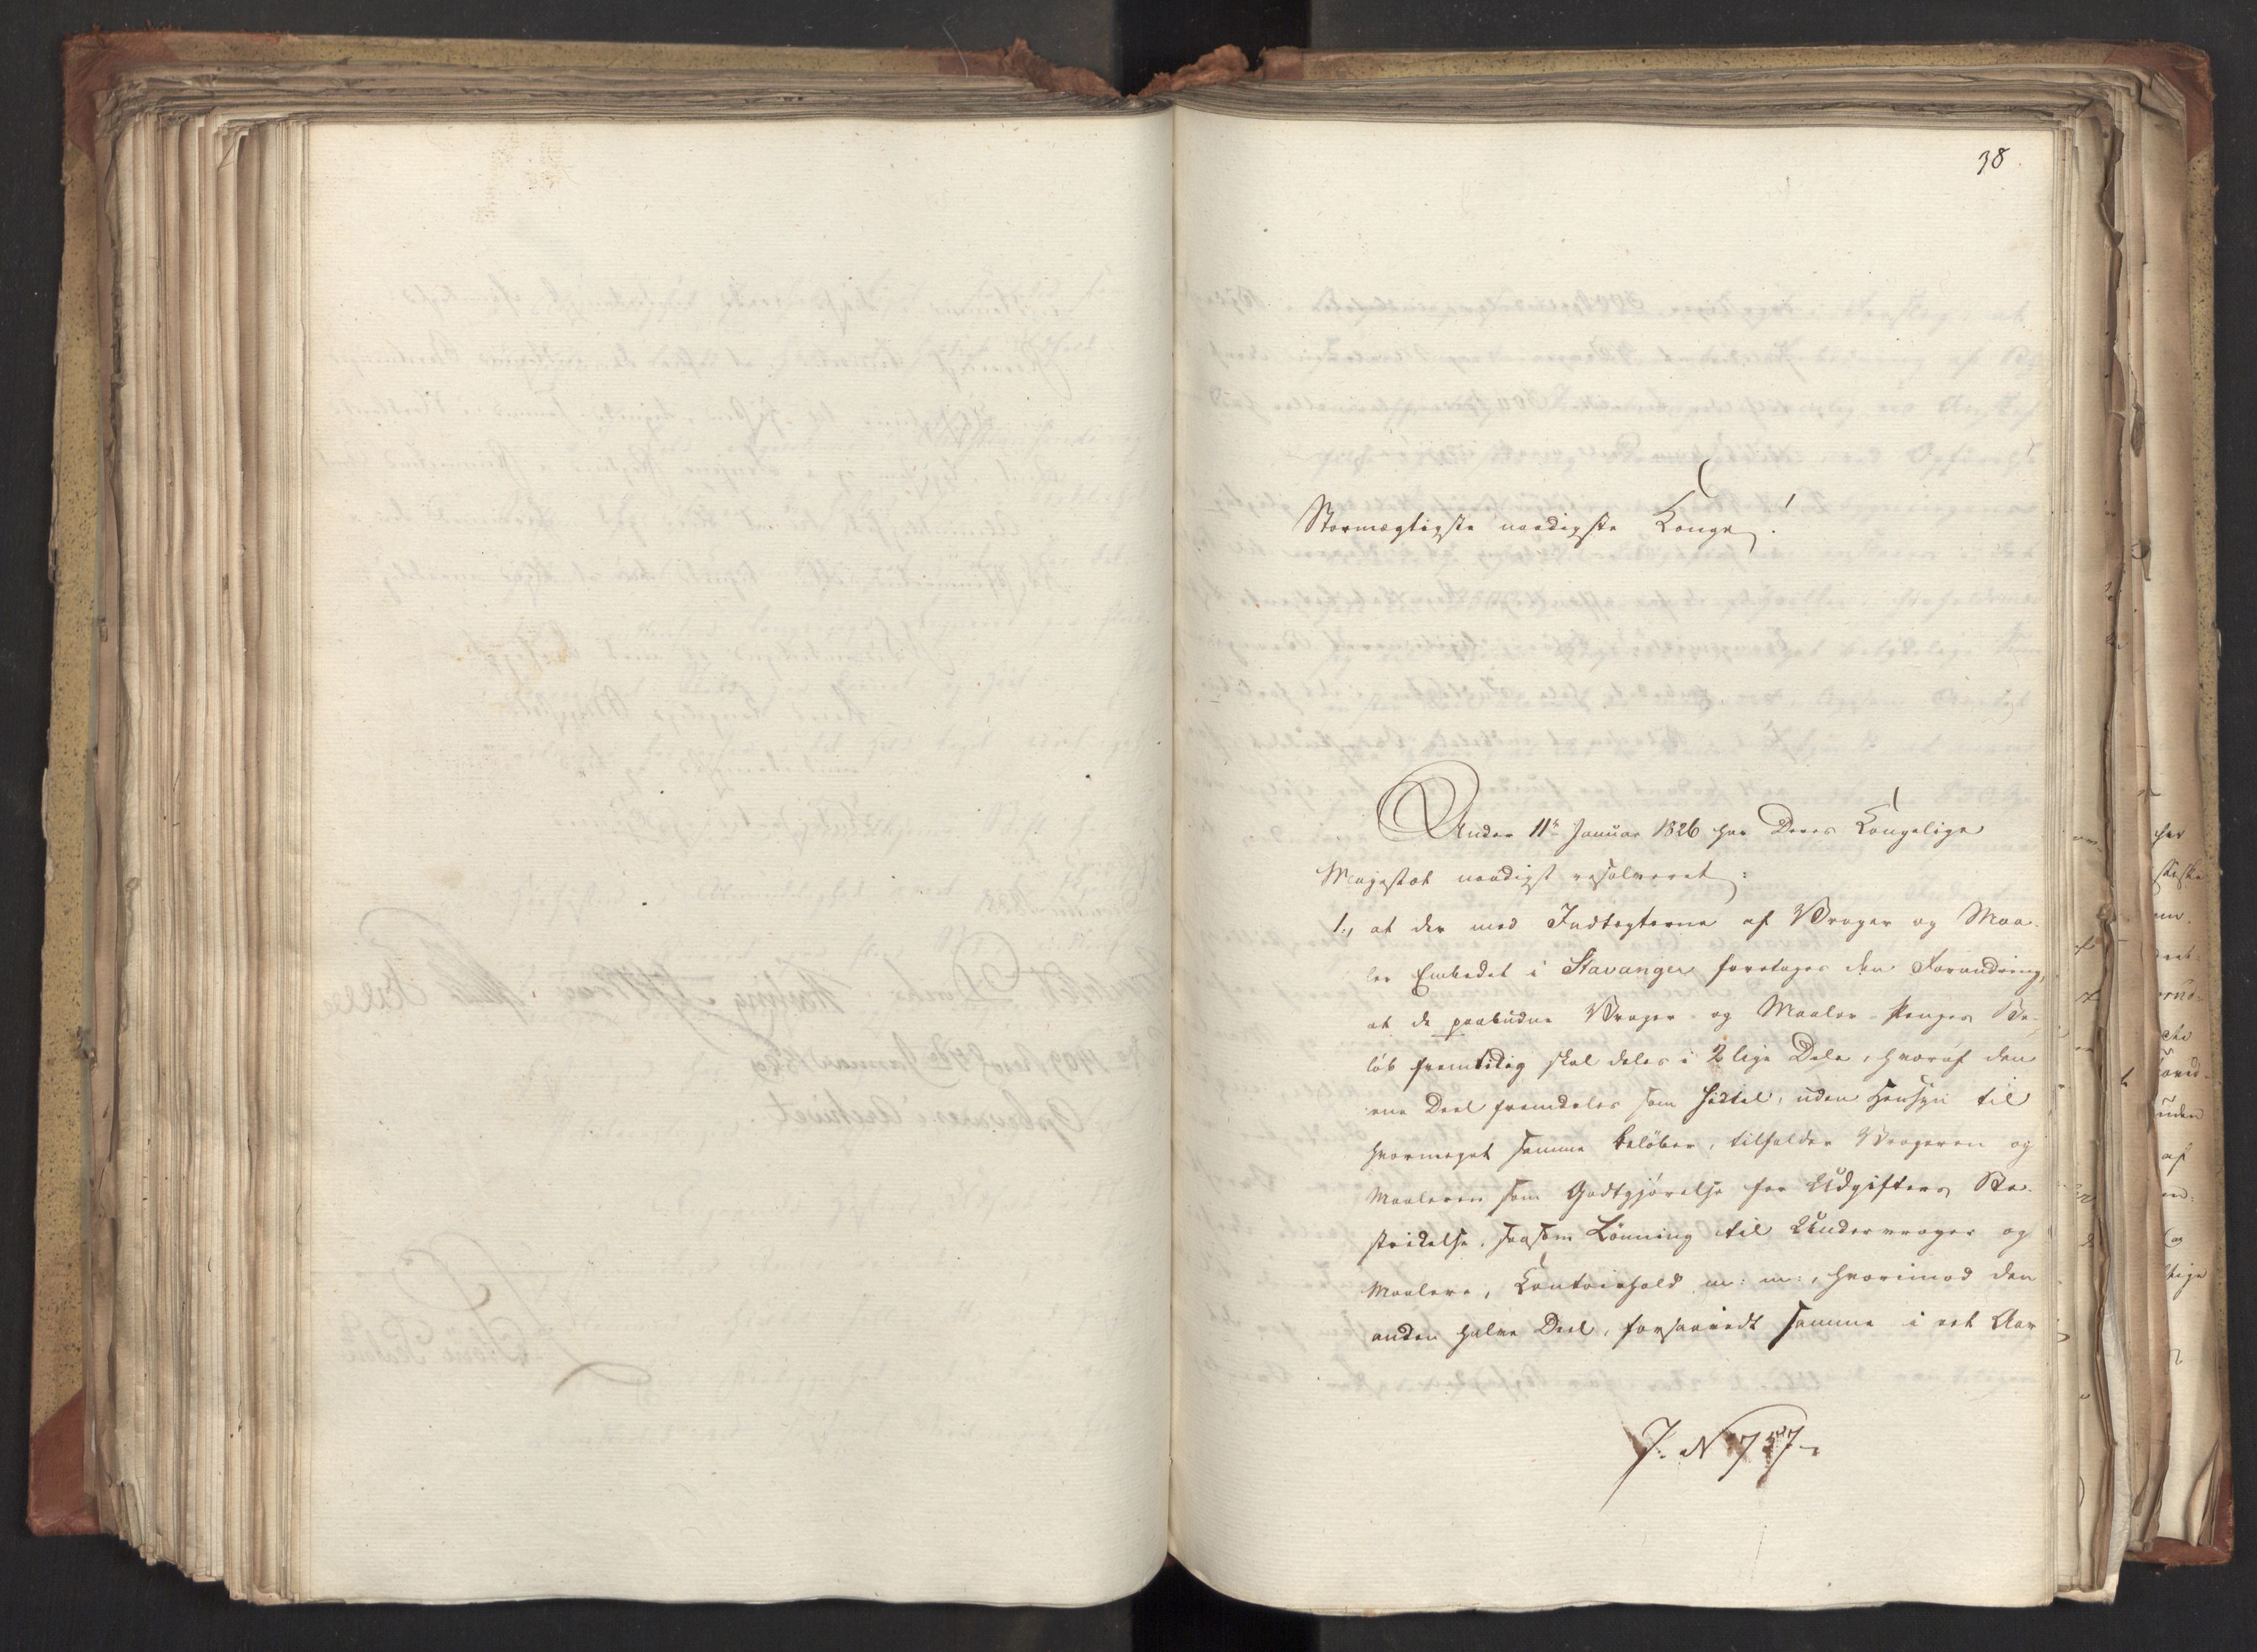 38
Stormægtigste naadigste Konge!
Under 11te Januar 1826 har Deres Kongelige
Majestæt naadigst resolveret:
1., at der med Indtægterne af Vrager og Maa-
ler Embedet i Stavanger foretages den Forandring,
at de paabudne Vrager- og Maaler-Penges Be-
löb fremtidig skal deles i 2 lige Dele, hvoraf den
ene Deel fremdeles som hidtil, uden Hensyn til
hvormeget samme belöber, tilfalder Vrageren og
Maaleren som Godtgjörelse for Udgifters Be-
stridelse, saasom Lönning til Undervrager og
Maalere, Contoirhold m: m:, hvorimod den
anden halve Deel, forsaavidt samme i eet Aar
J. N 737